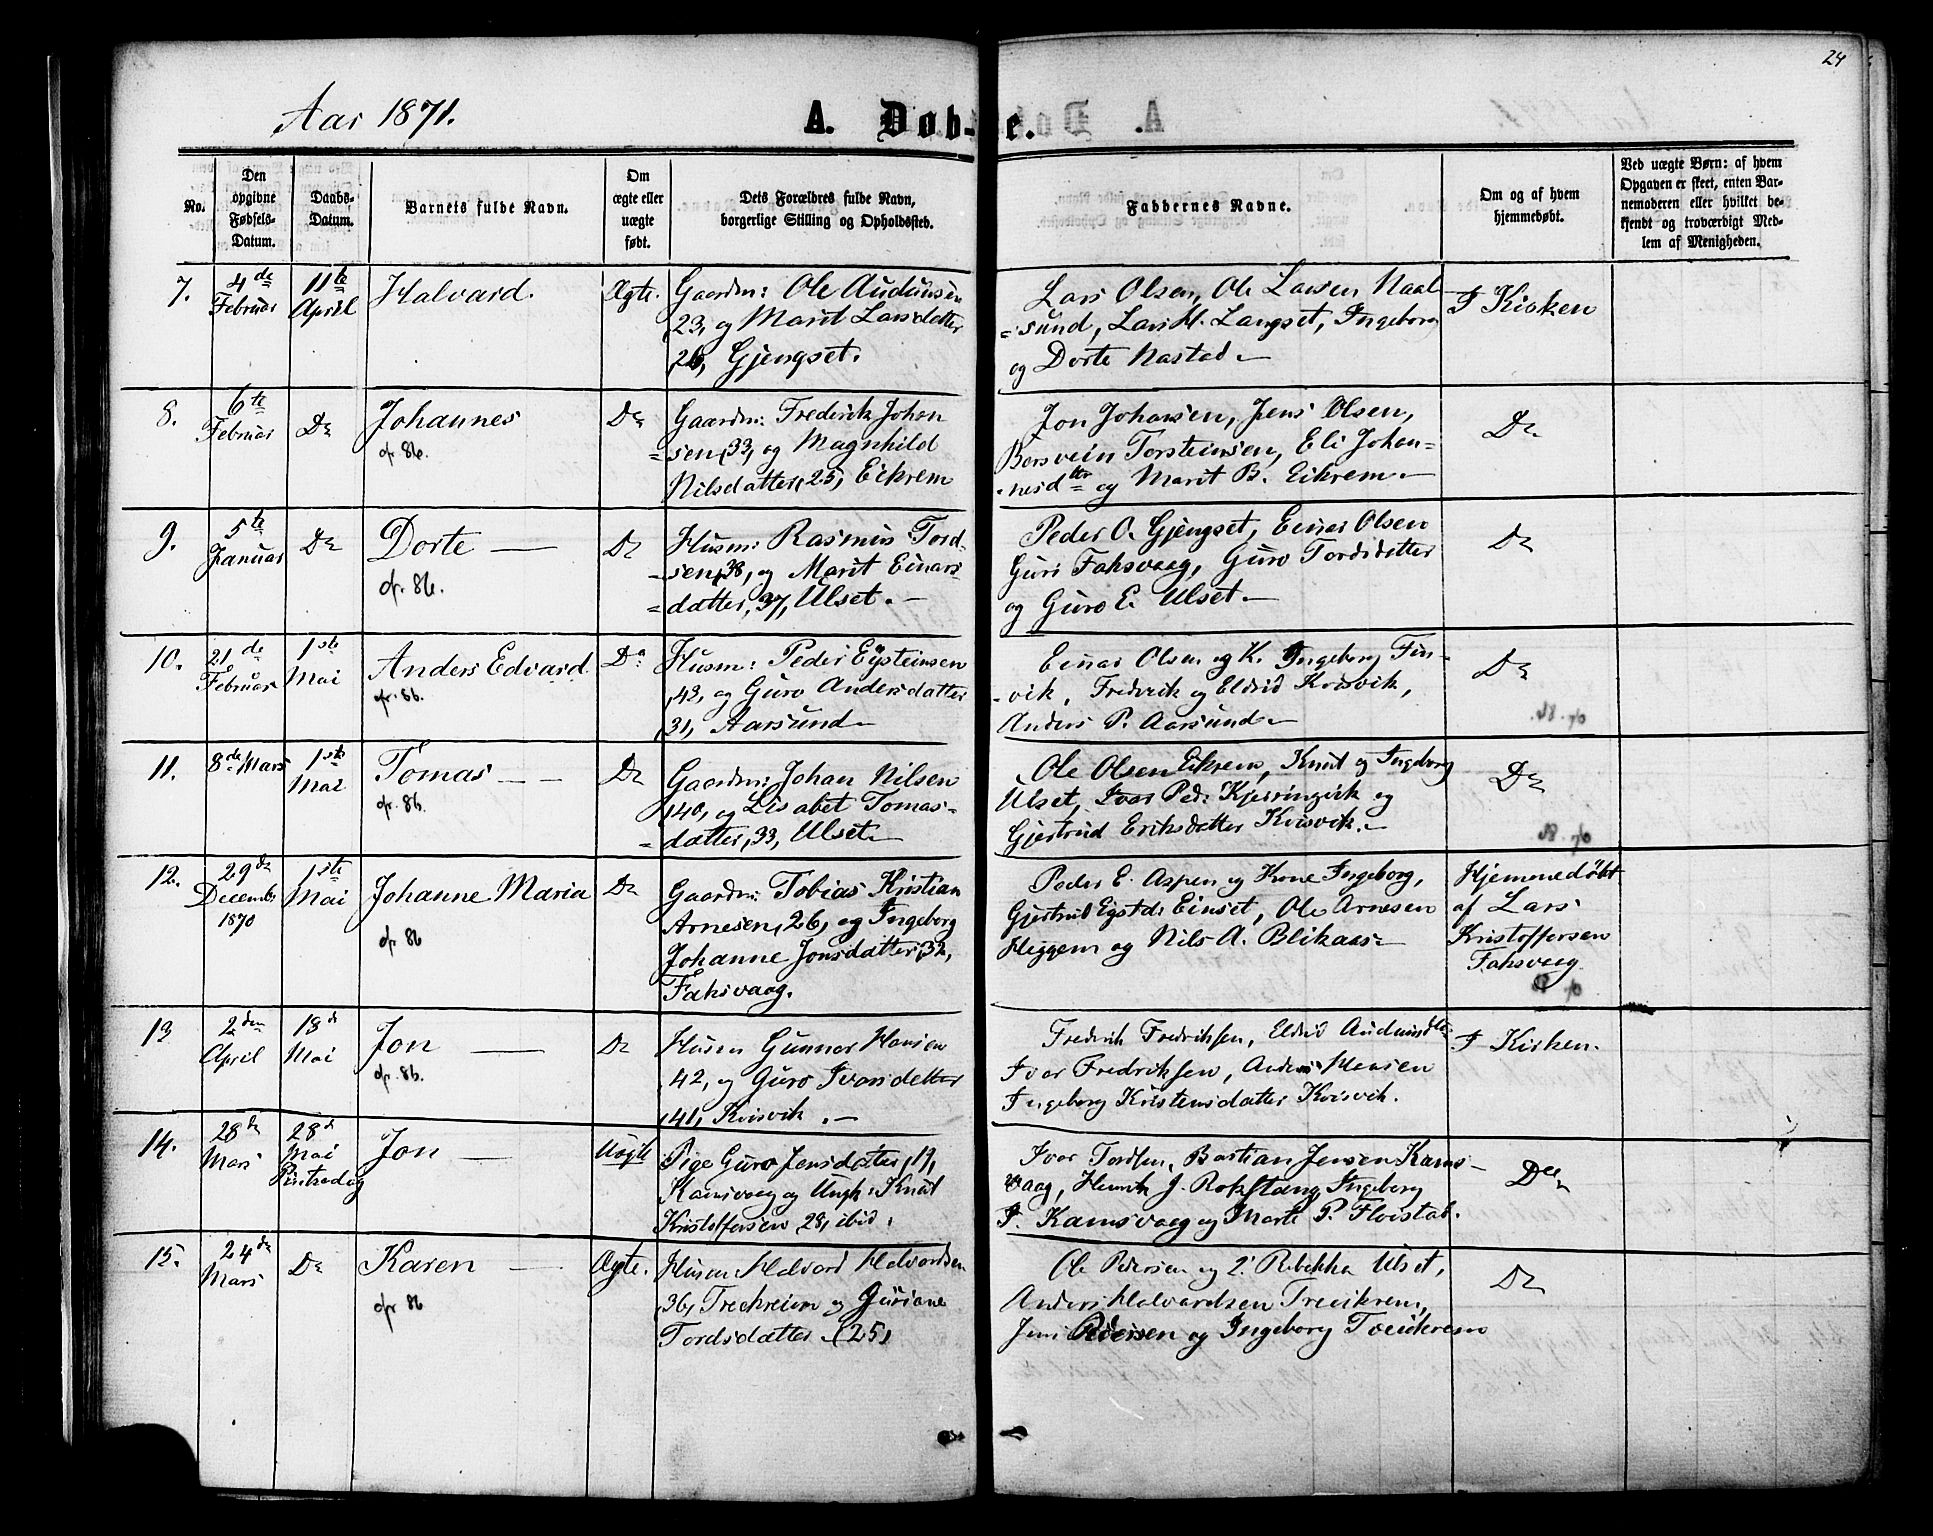 24
Aar 1871.
A. Døb-
e.
No.
Den
opgivne
Fødsels-
Datum.
Daabs-
Datum.
Barnets fulde Navn.
Om
ægte eller
uægte
født.
Dets Forældres fulde Navn,
borgerlige Stilling og Opholdssted.
Faddernes Navne.
Om og af hvem
hjemmedøbt.
Ved uægte Børn: af hvem
Opgaven er skeet, enten Bar-
nemoderen eller hvilket be-
kjendt og troværdigt Med-
lem af Menigheden.
7.
4de
Februar
11te
April
Halvard.
Ægte.
Gaardm: Ole Audunsen
23, og Marit Larsdatter
26, Gjengset.
Lars Olsen, Ole Larsen Naal
=sund, Lars H. Langset, Ingeborg
og Dorte Nastad.-
I Kirken
8.
6te
Februar
Do
Johannes
Do
Gaardm: Frederik Johan
=sen, 33, og Magnhild
Nilsdatter, 25, Eikrem
Jon Johansen, Jens Olsen,
Torsteinsen, Eli Johan=
nesdtr og Marit B. Eikrem.-
Do
9.
5te
Januar
Do
Dorte
Do
Husm: Rasmus Tord-
sen, 38, og Marit Einars-
=datter, 37, Ulset.-
Peder O. Gjengset, Einar Olsen
Guri Fahsvaag, Guro Tordsdatter
og Guro E. Ulset.-
Do
10.
21de
Februar
1ste
Mai
Anders Edvard
Do
Husm: Peder Eysteinsen
42, og Guro Andersdatter
31, Aarsund-
Einar Olsen og K. Ingeborg Fin-
-vik, Fredrik og Eldrid Kvisvik,
Anders P. Aarsund.-
Do
11.
8de Mars
1ste
Mai
Tomas
Do
Gaardm: Johan Nilsen
40, og Lisabet Tomas=
=datter, 33, Ulset.-
Ole Olsen Eikrem, Knut og Ingeborg
Ulset, Ivar Peds Kjerringvik og
Gjertrud Eriksdatter Kvisvik.-
Do
12.
29de
Decembr
1870
1ste
Mai
Johanne Maria
Do
Gaardm: Tobias Kristian
Arnesen, 26, og Ingeborg
Johanne Jonsdatter, 32,
Fahsvaag.
Peder E. Aspen og Kone Ingeborg,
Gjertrud Eystd: Einset, Ole Arnesen
Heggem og Nils A. Blikaas-
Hjemmedøbt
af Lars
Kristoffersen
Fahsvaag
13
2den
April
18d
Mai
Jon
Do
Husm Gunnar Hansen
42, og Guro Ivarsdatter
41, Kvisvik.-
Fredrik Fredriksen, Eldrid Audunsdtr
Ivar Fredriksen, Anders Hansen
Ingeborg Kristensdatter Kvisvik.
I Kirken.
14.
28de
Mars
28d
Mai
Pintsedag
Jon
Uægte
Pige Guro Jensdatter, 19,
Kamsvaag og Ungk: Knut
Kristoffersen 28, ibid.
Ivar Tordsen, Bastian Jensen Kams-
vaag, Henrik J. Rokstang, Ingeborg
I. Kamsvaag og Marte P. Floistad.
Do
15.
24de
Mars
Do
Karen
Ægte.
Husm: Halvard Halvardsen
36, Treekreim og Guriane
Tordsdatter (25,
Ole Pedersen og Rebekka Ulset,
Anders Halvardsen Trevikrem,
Jens Pedersen og Ingeborg Trevikrem
Do